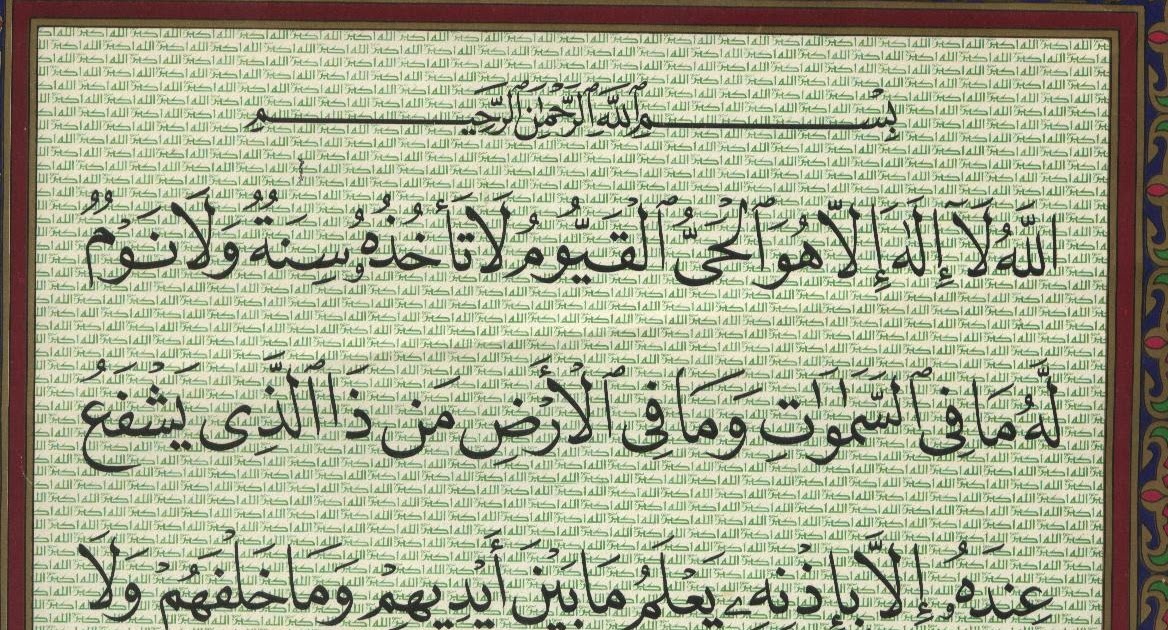 بِسْمِ ٱللَّهِ ٱلرَّحْمَٰنِ ٱلرَّحِيمِ
اللَّهُ لَآ إِلَٰهَ إِلَّا هُوَ ٱلْحَىُّ ٱلْقَيُّومُ لَا تَأْخُذُهُۥ سِنَةٌ وَلَا نَوْمٌ
لَّهُۥ مَا فِى ٱلسَّمَٰوَٰتِ وَمَا فِى ٱلْأَرْضِ مَن ذَا ٱلَّذِى يَشْفَعُ
عِندَهُۥٓ إِلَّا بِإِذْنِهِۦ يَعْلَمُ مَا بَيْنَ أَيْدِيهِمْ وَمَا خَلْفَهُمْ وَلَا